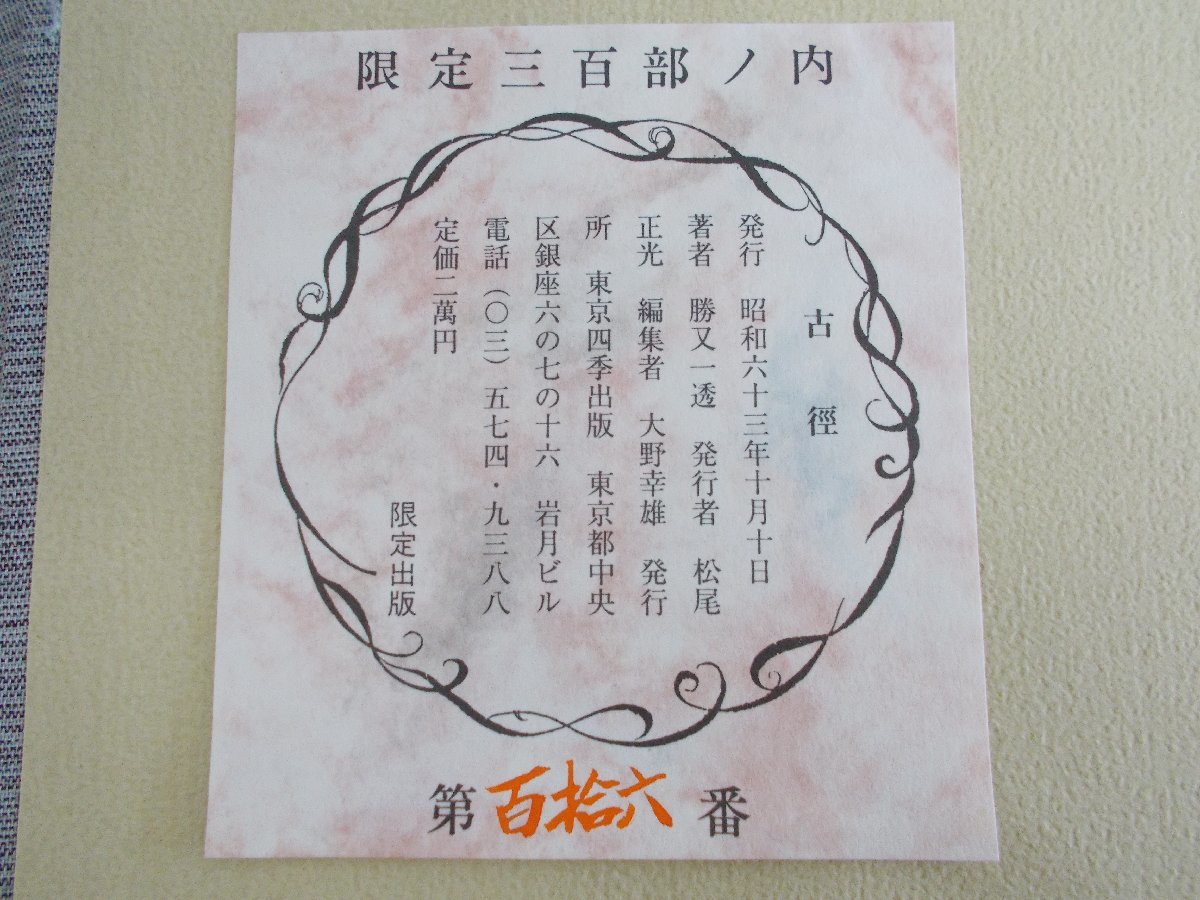 限定三百部ノ内
古徑
発行　昭和六十三年十月十日
著者　勝又一透　発行者　松尾
正光　編集者　大野幸雄　発行
所　東京四季出版　東京都中央
区銀座六の七の十六　岩月ビル
電話（〇三）五七四・九三八八
定価二萬円
限定出版
第百拾六番